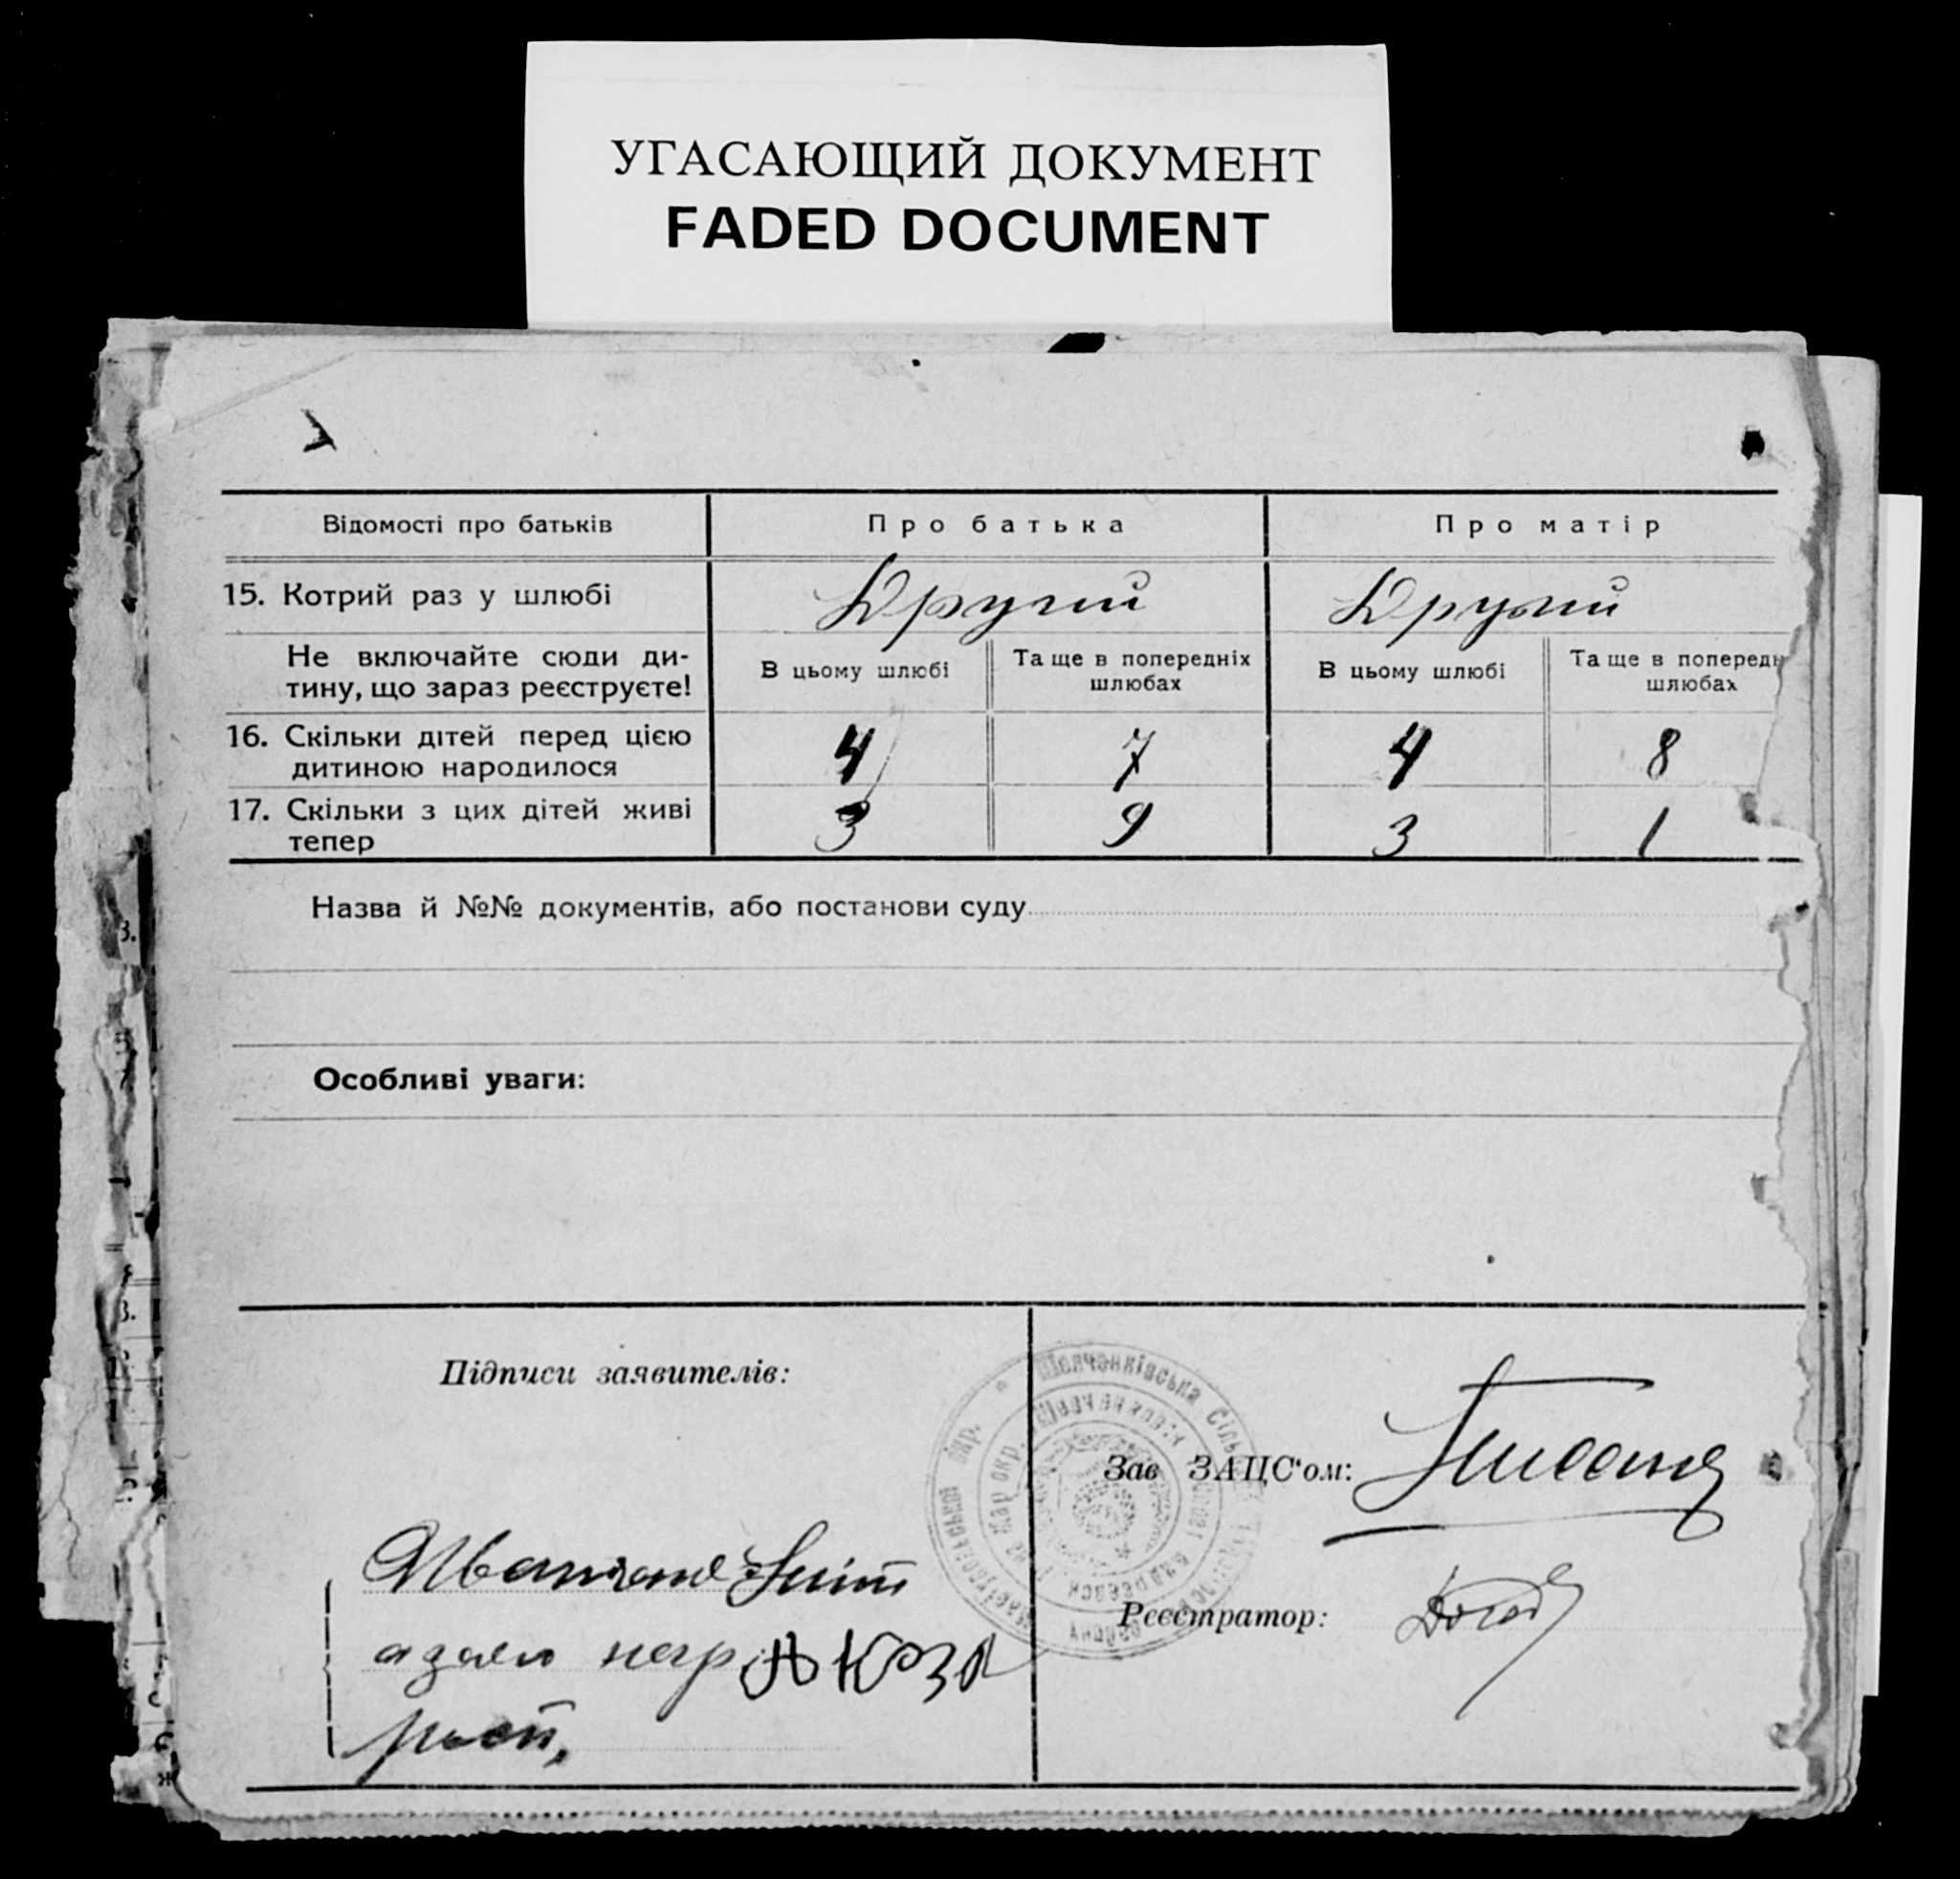 УГАСАЮЩИЙ ДОКУМЕНТ
FADED DOCUMENT
Відомості про батьків
Про батька
Про матір
15. Котрий раз у шлюбі
Другий
Другий
Не включайте сюди ди-
тину, що зараз реєструєте!
В цьому шлюбі
Та ще в попередніх
шлюбах
В цьому шлюбі
Та ще в поперед
шлюбах
16. Скільки дітей перед цією
дитиною народилося
4
7
4
8
17. Скільки з цих дітей живі
тепер
3
9
3
1
Назва й №№ документів, або постанови суду
Особливі уваги:
Підписи заявителів:
Шевчанківська Сіль
Мар. окр.
Зав ЗАЦС'ом:
Реєстратор: